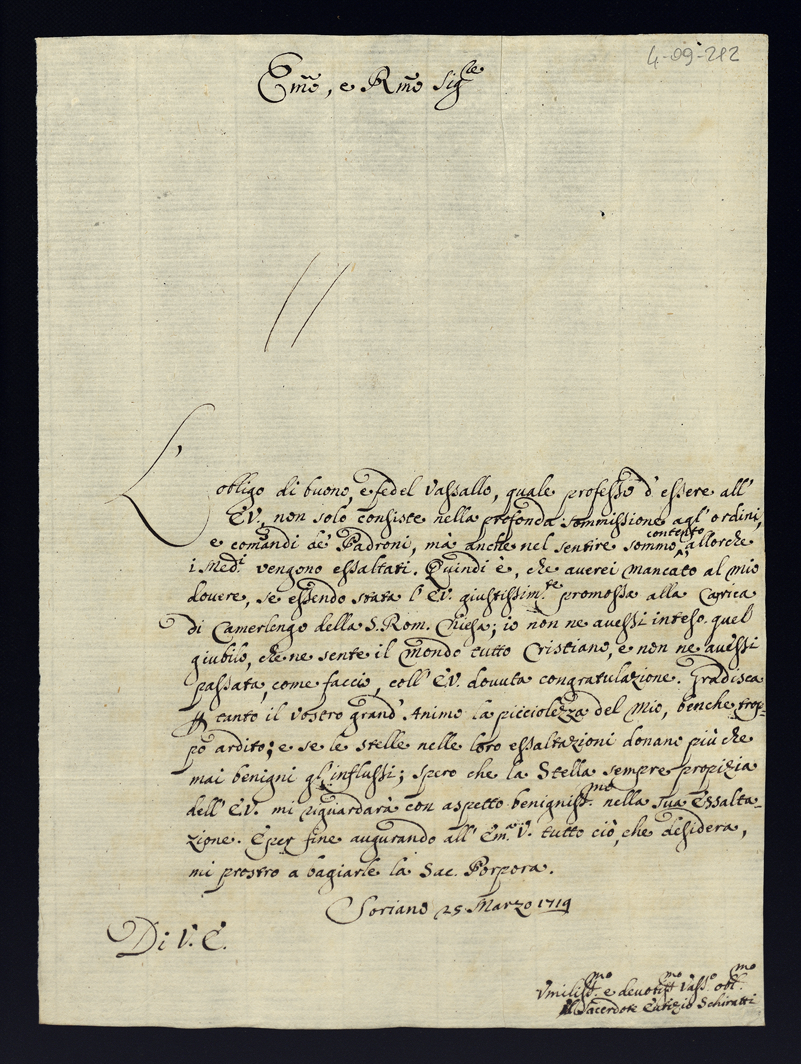 4-09-212
Emo, e Rmo Sig.re
L'obligo di buono, e fedel Vassallo, quale professo d'essere all'
E.V., non solo consiste nella profonda sommissione agl'ordini,
e comandi de' Padroni, mà anche nel sentire sommo contento allorche
i Med.i vengono essaltati. Quindi è, che averei mancato al mio
dovere, se essendo stata l'E.V. giustissim.te promossa alla Carica
di Camerlengo della S. Rom. Chiesa; io non ne avessi inteso quel
giubilo, che ne sente il mondo tutto Cristiano, e non ne avessi
passata, come faccio, coll'E.V. dovuta congratulazione. Gradisca
per tanto il vostro grand'Animo la picciolezza del mio, benche trop-
po ardito; e se le stelle nelle loro essaltazioni donano più che
mai benigni gl'influssi; spero che la Stella sempre propizia
dell'E.V. mi riguardarà con aspetto benigniss.mo nella sua Essalta-
zione. E per fine augurando all'Em.a V. tutto ciò, che desidera,
mi prostro a bagiarle la Sac. Porpora.
Soriano 25 Marzo 1719
Di V. E.
Vmiliss.mo e devotiss.mo Vass.o obl.mo
Il Sacerdote Schiratti